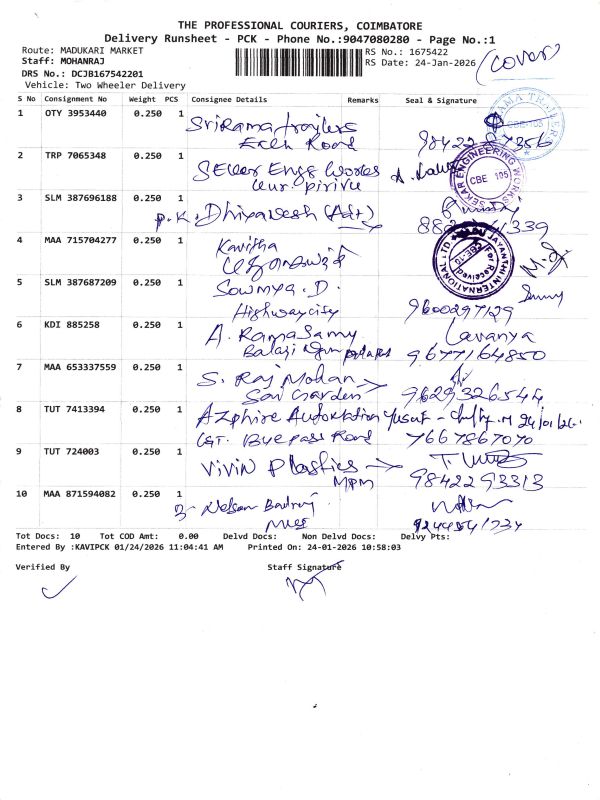 THE PROFESSIONAL COURIERS, COIMBATORE
Delivery Runsheet - PCK - Phone No.:9047080280 - Page No.:1
Route: MADUKARI MARKET
RS No.: 1675422
Staff: MOHANRAJ
RS Date: 24-Jan-2026
(cover)
DRS No.: DCJB167542201
Vehicle: Two Wheeler Delivery
S No Consignment No Weight PCS Consignee Details Remarks Seal & Signature
1 OTY 3953440 0.250 1 SriRama trailers
Road
CBE-105
2 TRP 7065348 0.250 1 Engg Works
SEKAR ENGINEERING WORKS
CBE 105
3 SLM 387696188 0.250 1 P.K. Dhiyanesh (Adt)
4 MAA 715704277 0.250 1 Kavitha
JAYANTHI INTERNATIONAL LTD
For Received
5 SLM 387687209 0.250 1 Sowmya. D.
Highwaycity 9600297129
6 KDI 885258 0.250 1 A. Ramasamy Lavanya
Balaji 9677164850
7 MAA 653337559 0.250 1 S. Raj Mohan
Sai Garden 9629326544
8 TUT 7413394 0.250 1 Azphire Automation Yusuf - 24/01/26.
Bye pass Road 7667867070
9 TUT 724003 0.250 1 Vivin Plastics
MPM 9842293313
10 MAA 871594082 0.250 1 Nelson
Tot Docs: 10 Tot COD Amt: 0.00 Delvd Docs: Non Delvd Docs: Delvy Pts:
Entered By :KAVIPCK 01/24/2026 11:04:41 AM Printed On: 24-01-2026 10:58:03
Verified By Staff Signature